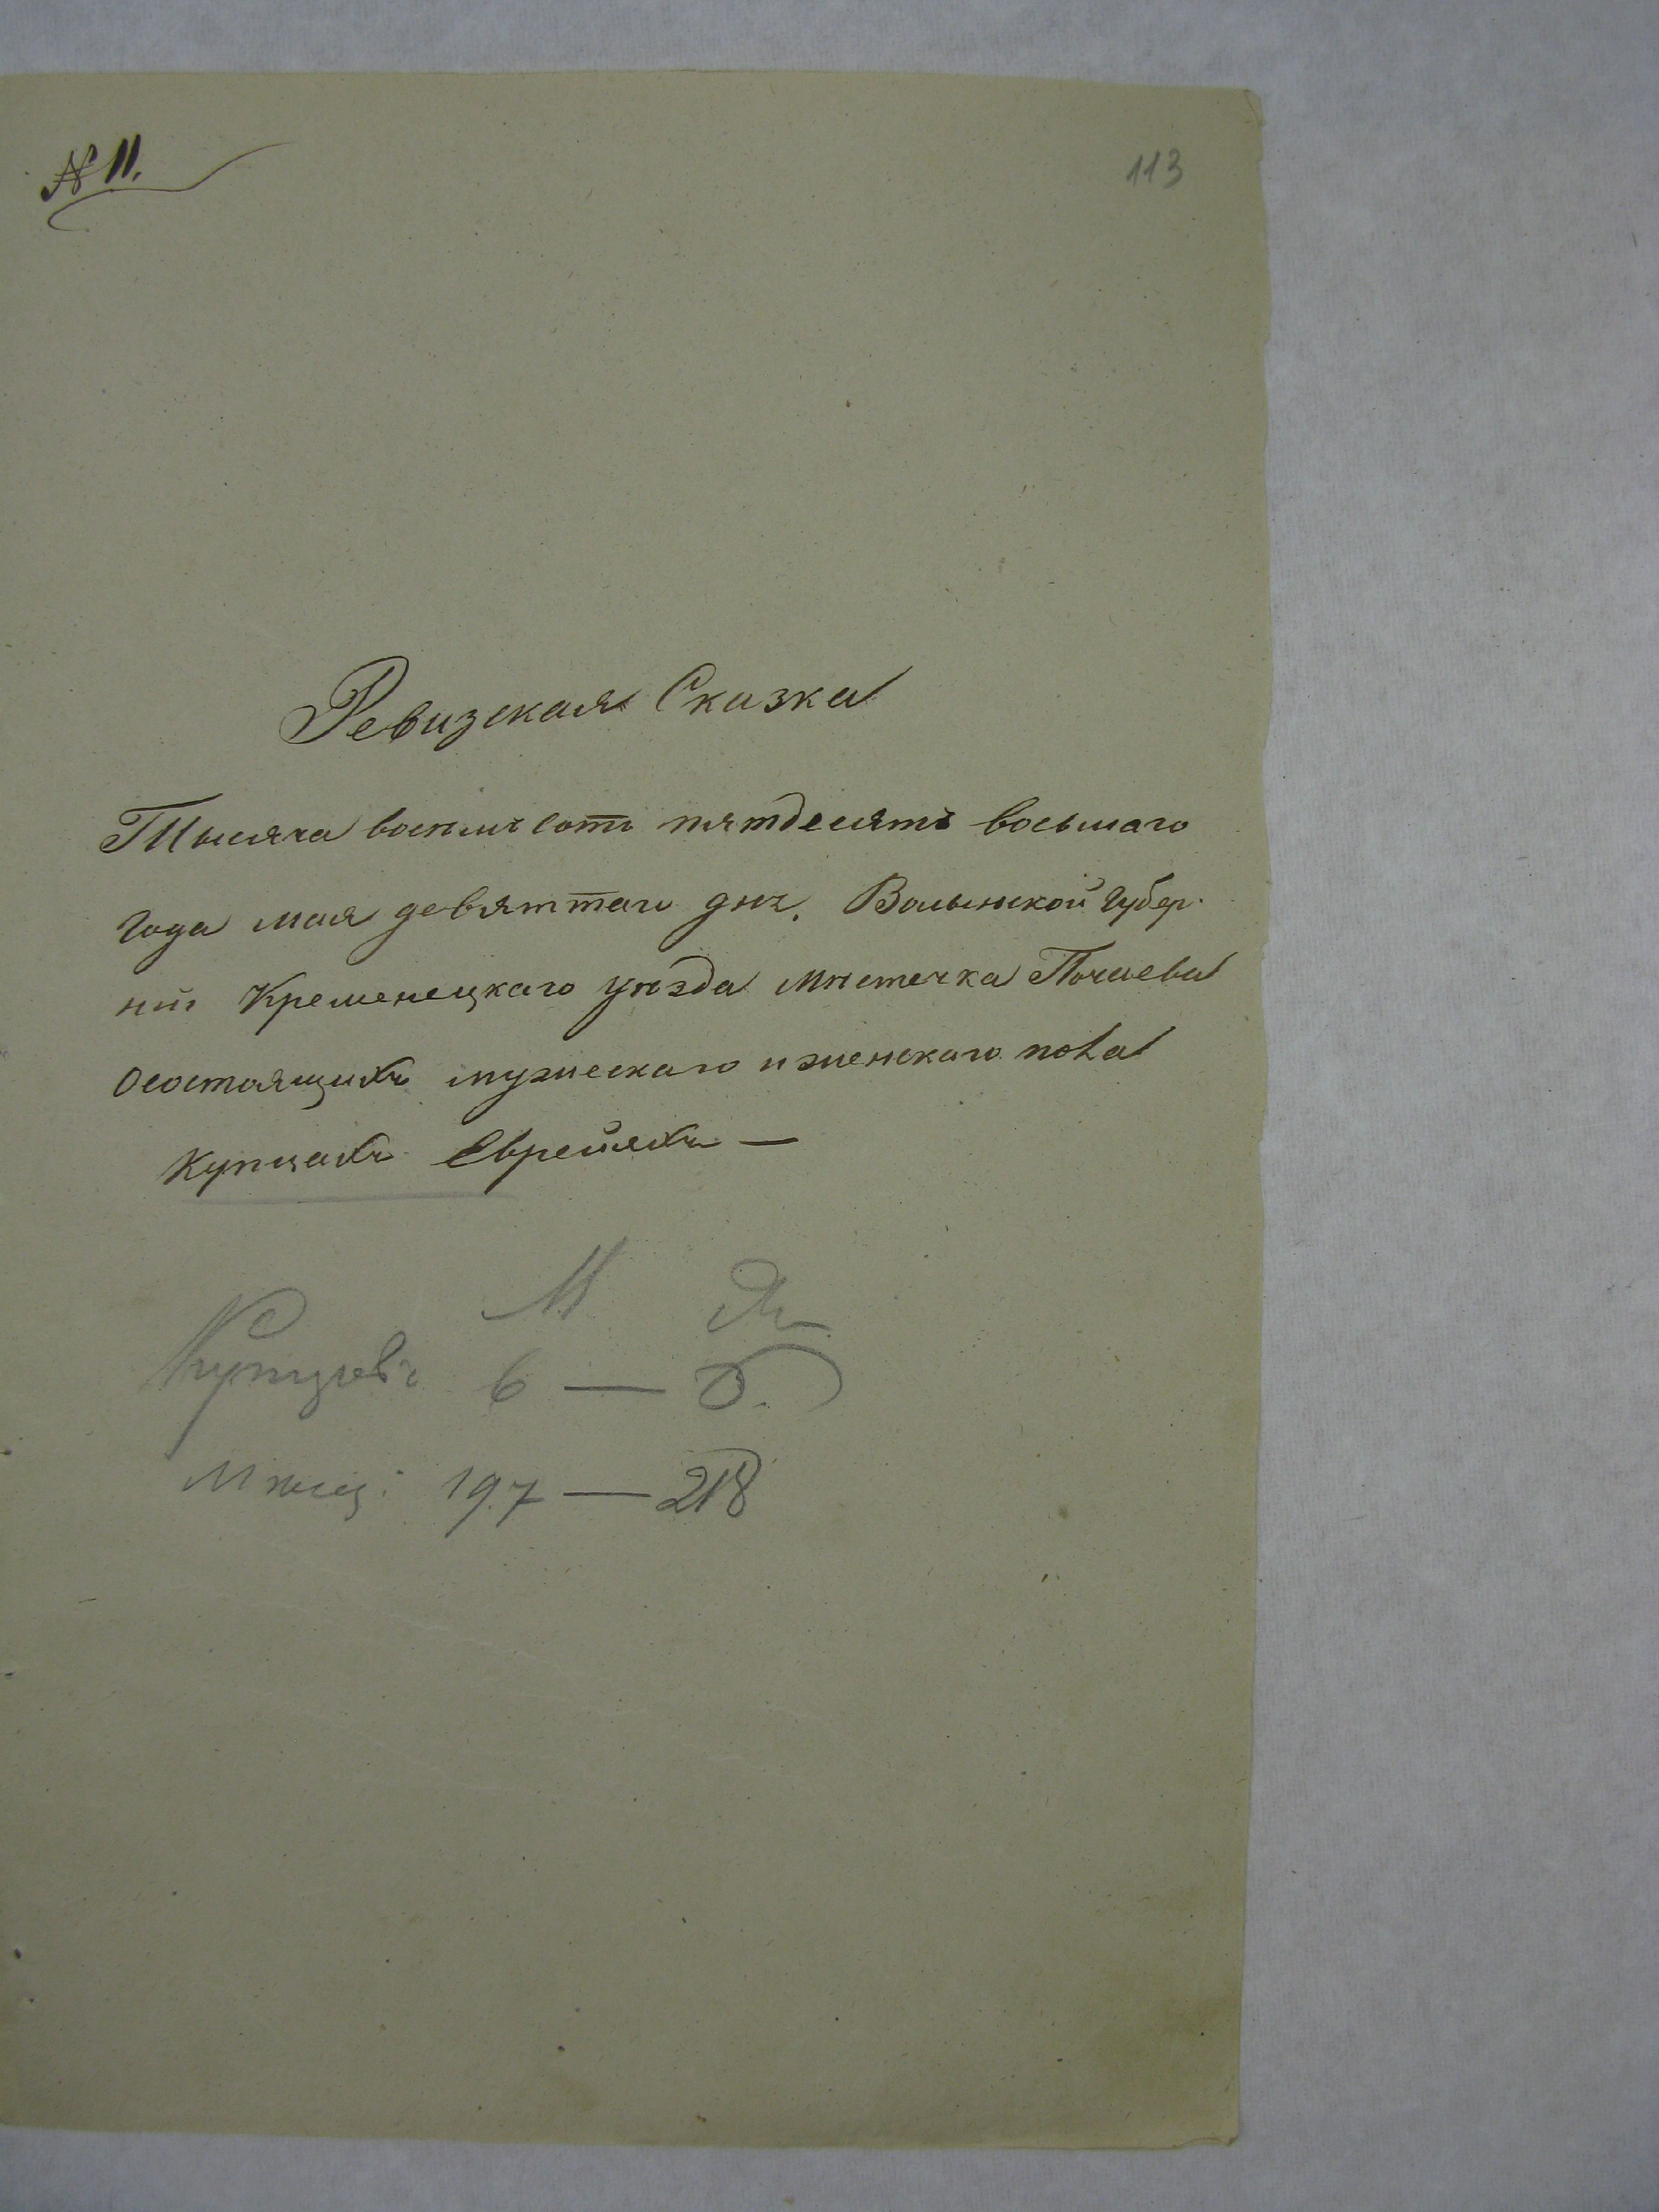 № 11.
113
Ревизская Сказка
Тысяча восемъ сотъ пятдесятъ восьмаго
Года мая девяттаго дня. Волынской Губер-
ніи Кременецкаго уѣзда Мѣстечка Почаева
Осостоящихъ мужескаго и женскаго пола
Купцахъ Евреяхъ —
М Ж
Купцевъ 6 —
Мѣщ: 197 — 218